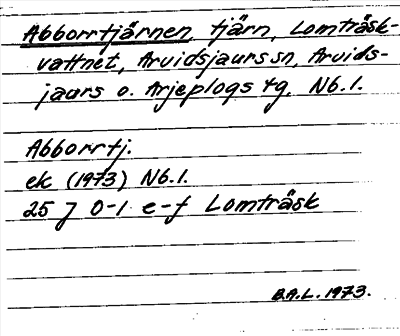 Abborrtjärnen, tjärn, Lomträsk-
vattnet, Arvidsjaurs sn, Arvids-
jaurs o. Arjeplogs tg. Nb.l.
Abborrtj.
ek (1973) Nb.l.
25 J 0-1 e-f Lomträsk
B.A.L. 1973.